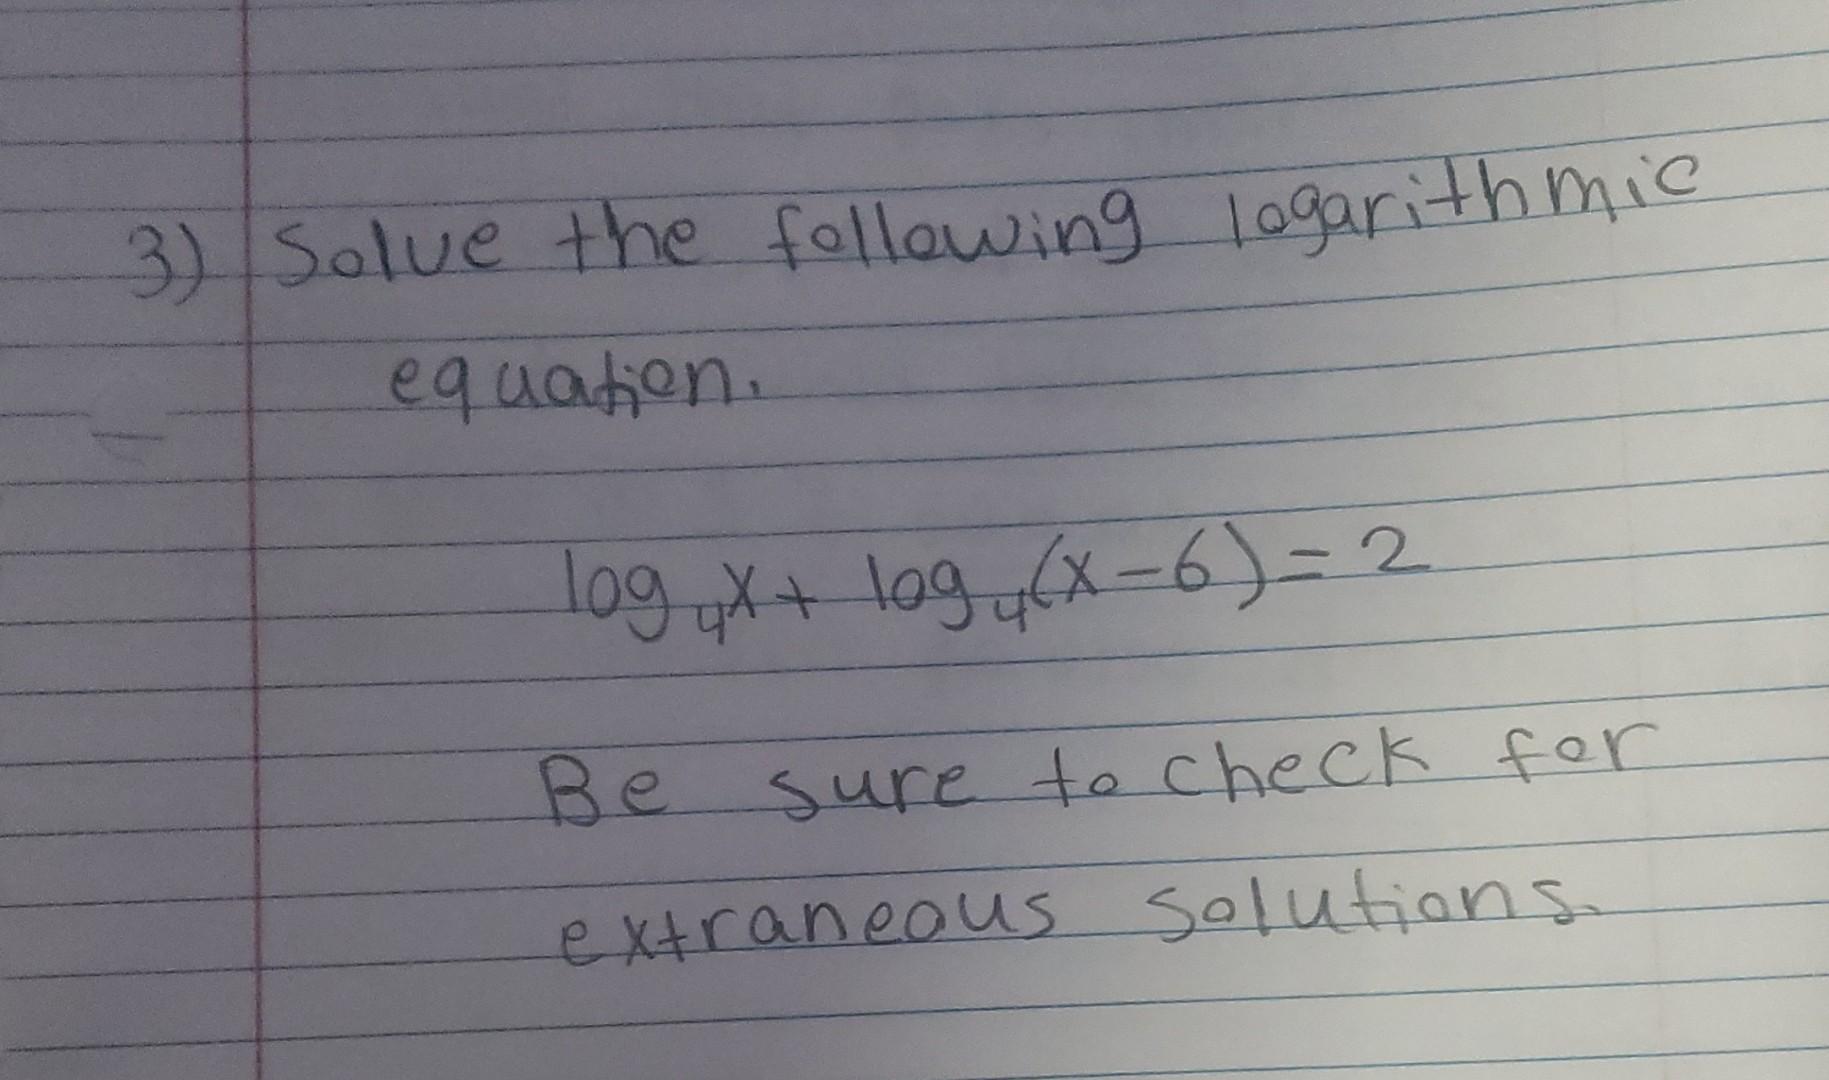 3) Solve the following logarithmic
equation.
log₄x + log₄(x-6) = 2
Be sure to check for
extraneous solutions.